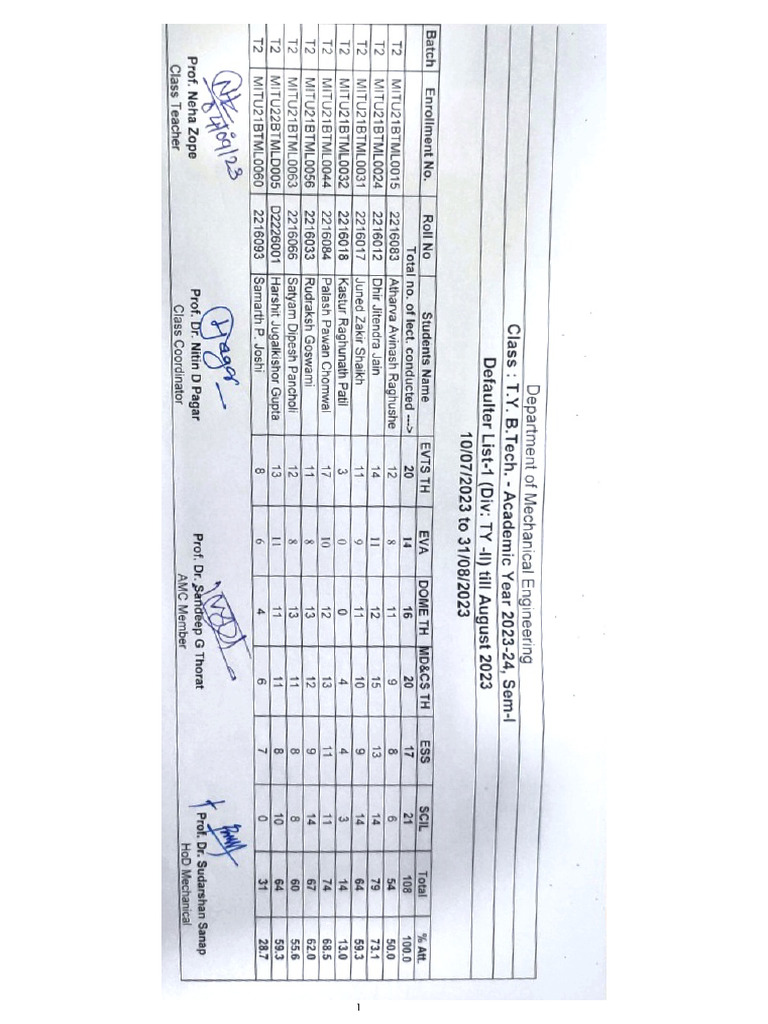 Department of Mechanical Engineering
Class : T.Y. B.Tech. - Academic Year 2023-24, Sem-I
Defaulter List-1 (Div: TY -II) till August 2023
10/07/2023 to 31/08/2023
Batch Enrollment No. Roll No Students Name EVTS TH EVA DOME TH MD&CS TH ESS SCIL Total % Att.
Total no. of lect. conducted ---> 20 14 16 20 17 21 108 100.0
T2 MITU21BTML0015 2216083 Atharva Avinash Raghushe 12 8 11 9 8 6 54 50.0
T2 MITU21BTML0024 2216012 Dhir Jitendra Jain 14 11 12 15 13 14 79 73.1
T2 MITU21BTML0031 2216017 Juned Zakir Shaikh 11 9 11 10 9 14 64 59.3
T2 MITU21BTML0032 2216018 Kastur Raghunath Patil 3 0 0 4 4 3 14 13.0
T2 MITU21BTML0044 2216084 Palash Pawan Chomwal 17 10 12 13 11 11 74 68.5
T2 MITU21BTML0056 2216033 Rudraksh Goswami 11 8 13 12 9 14 67 62.0
T2 MITU21BTML0063 2216066 Satyam Dipesh Pancholi 12 8 13 11 8 8 60 55.6
T2 MITU22BTMLD005 D2226001 Harshit Jugalkishor Gupta 13 11 11 11 8 10 64 59.3
T2 MITU21BTML0060 2216093 Samarth P. Joshi 8 6 4 6 7 0 31 28.7
Prof. Neha Zope Prof. Dr. Nitin D Pagar Prof. Dr. Sandeep G Thorat Prof. Dr. Sudarshan Sanap
Class Teacher Class Coordinator AMC Member HoD Mechanical
1